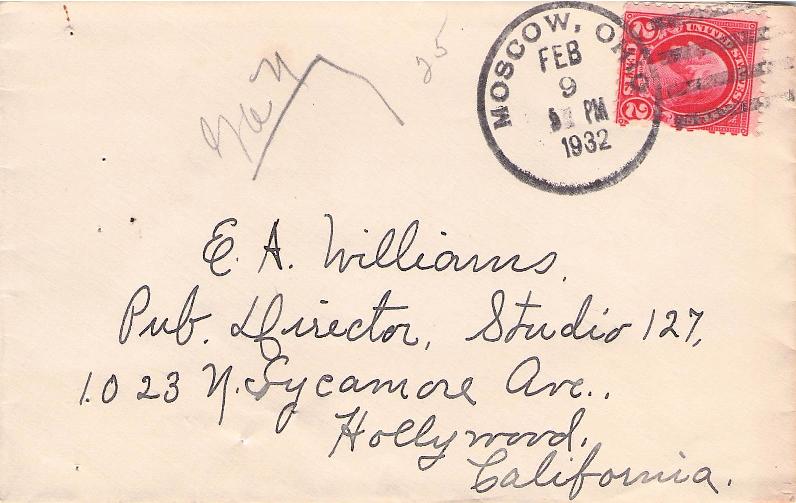 25
MOSCOW, O
FEB
9
PM
1932
UNITED STATES
2 CENTS 2
E. A. Williams,
Pub. Director, Studio 127,
1023 N. Sycamore Ave.,
Hollywood,
California.